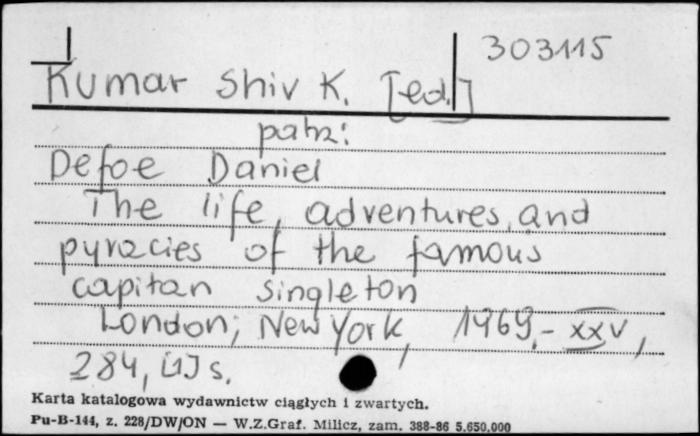 303115
Kumar Shiv K. [ed.]
patrz:
Defoe Daniel
The life, adventures, and
pyracies of the famous
capitan singleton
London; New York, 1969.- XXV,
284, [1] s.
Karta katalogowa wydawnictw ciągłych i zwartych.
Pu-B-144, z. 228/DW/ON — W.Z.Graf. Milicz, zam. 388-86 5.650.000